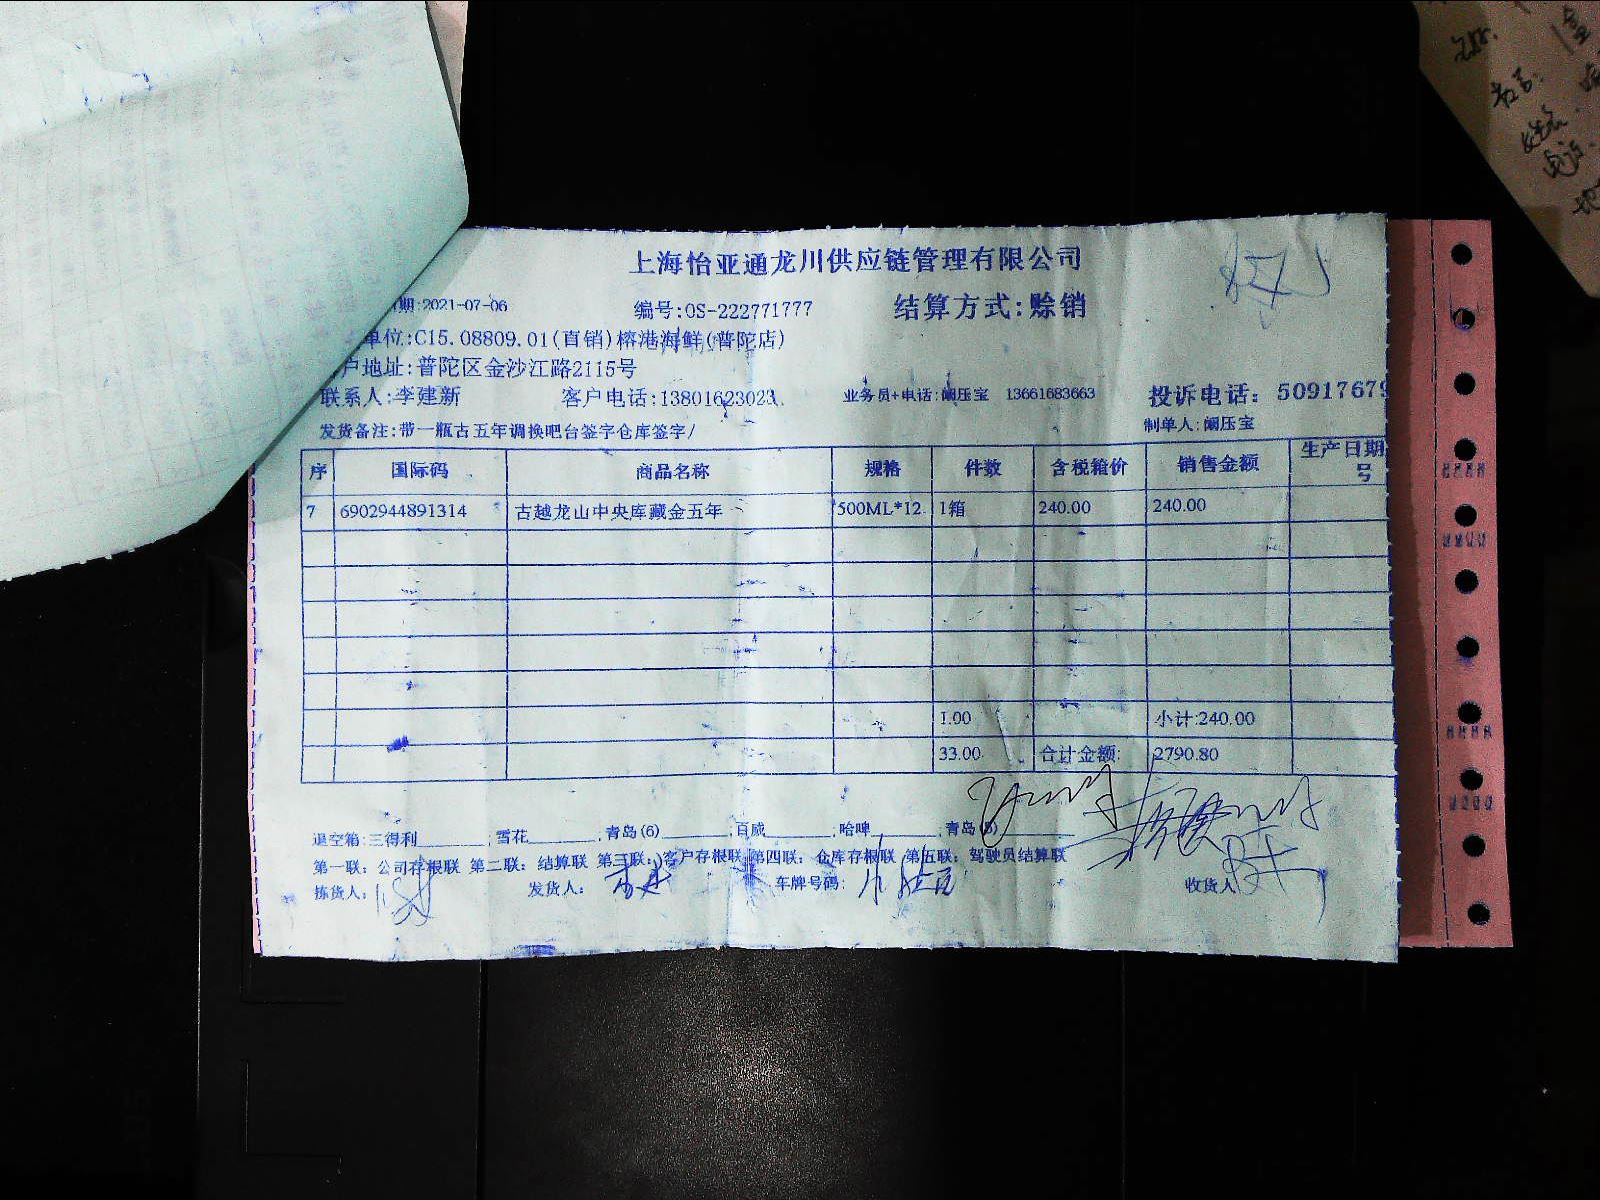 上海怡亚通龙川供应链管理有限公司
期:2021-07-06 编号:OS-222771777 结算方式:赊销
单位:C15.08809.01(直销)榕港海鲜(普陀店)
户地址:普陀区金沙江路2115号
联系人:李建新 客户电话:13801623023 业务员+电话:阚压宝 13661683663 投诉电话: 50917679
发货备注:带一瓶古五年调换吧台签字仓库签字/ 制单人:阚压宝
序 国际码 商品名称 规格 件数 含税箱价 销售金额 生产日期
号
7 6902944891314 古越龙山中央库藏金五年 500ML*12 1箱 240.00 240.00
1.00 小计:240.00
33.00 合计金额: 2790.80
退空箱:三得利________;雪花________;青岛(6)________;百威________;哈啤________;青岛(8)________
第一联:公司存根联 第二联:结算联 第三联:客户存根联 第四联:仓库存根联 第五联:驾驶员结算联
拣货人: 发货人: 车牌号码: 收货人
姓名
电话